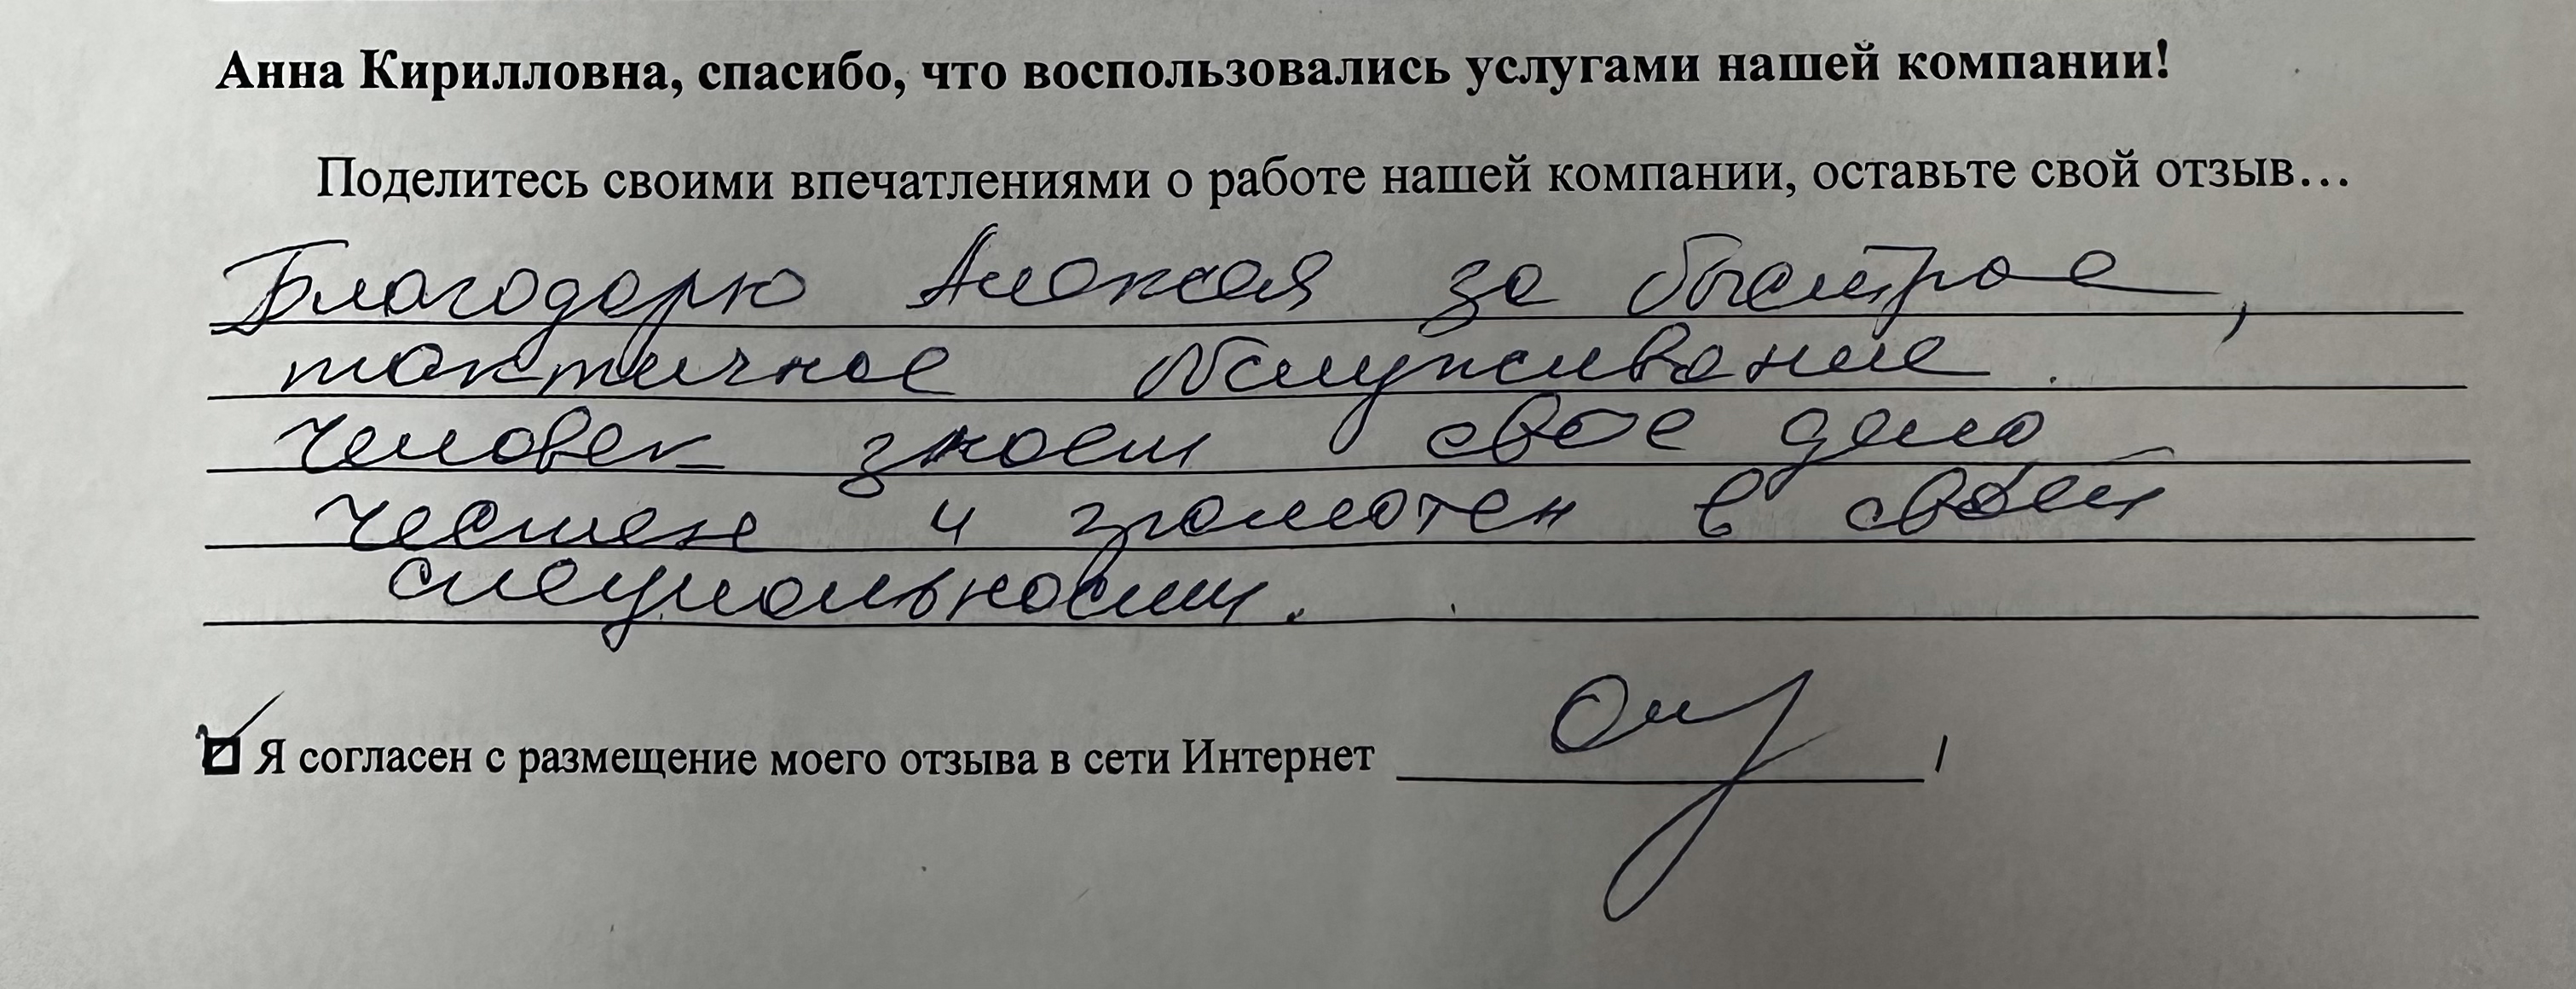 Анна Кирилловна, спасибо, что воспользовались услугами нашей компании!
Поделитесь своими впечатлениями о работе нашей компании, оставьте свой отзыв…
Благодарю Алексея за быстрое,
тактичное обслуживание.
Человек знает свое дело
честен и грамотен в своей
специальности.
Я согласен с размещение моего отзыва в сети Интернет